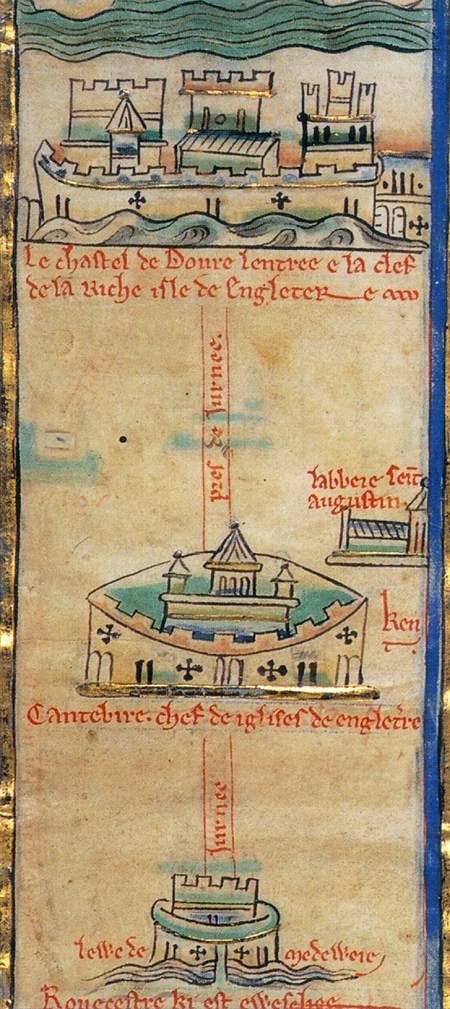 Le chastel de Doure lentree e la clef
de la riche isle de Engleter e
pres de Jurnee.
labbeie seit
augustin.
Ken
t.
Cantebire. chef de iglises de engletre
Jurnee
lewe de medeweie
Rouecestre ki est eweschee